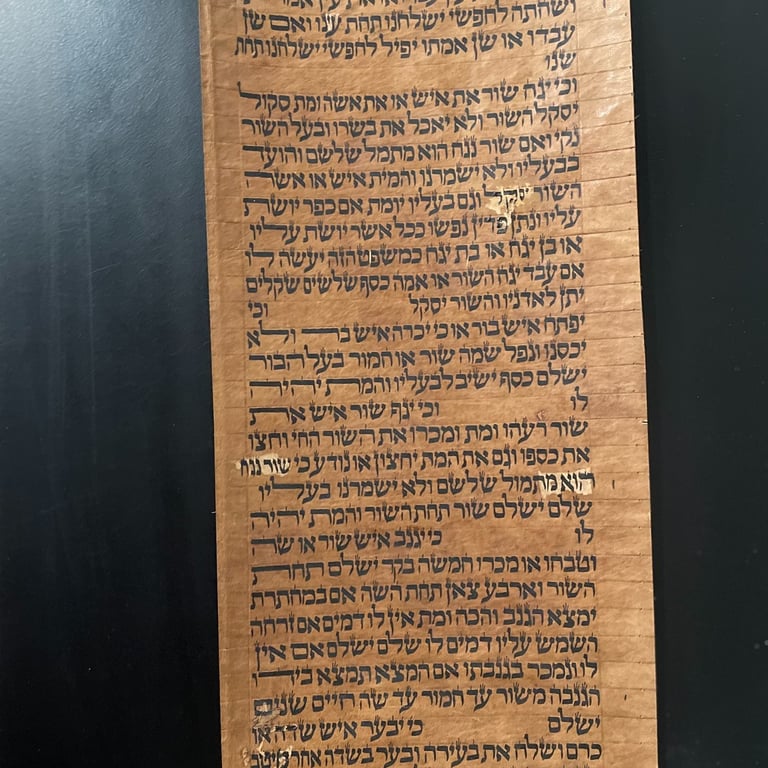 ושחתה לחפשי ישלחנו תחת עינו ואם שן
עבדו או שן אמתו יפיל לחפשי ישלחנו תחת
שנו
וכי יגח שור את איש או את אשה ומת סקול
יסקל השור ולא יאכל את בשרו ובעל השור
נקי ואם שור נגח הוא מתמל שלשם והועד
בבעליו ולא ישמרנו והמית איש או אשה
השור יסקל וגם בעליו יומת אם כפר יושת
עליו ונתן פדין נפשו ככל אשר יושת עליו
או בן יגח או בת יגח כמשפט הזה יעשה לו
אם עבד יגח השור או אמה כסף שלשים שקלים
יתן לאדניו והשור יסקל וכי
יפתח איש בור או כי יכרה איש בר ולא
יכסנו ונפל שמה שור או חמור בעל הבור
ישלם כסף ישיב לבעליו והמת יהיה
לו וכי יגף שור איש את
שור רעהו ומת ומכרו את השור החי וחצו
את כספו וגם את המת יחצון או נודע כי שור נגח
הוא מתמול שלשם ולא ישמרנו בעליו
שלם ישלם שור תחת השור והמת יהיה
לו כי יגנב איש שור או שה
וטבחו או מכרו חמשה בקר ישלם תחת
השור וארבע צאן תחת השה אם במחתרת
ימצא הגנב והכה ומת אין לו דמים אם זרחה
השמש עליו דמים לו שלם ישלם אם אין
לו ונמכר בגנבתו אם המצא תמצא בידו
הגנבה משור עד חמור עד שה חיים שנים
ישלם כי יבער איש שדה או
כרם ושלח את בעירה ובער בשדה אחר מיטב